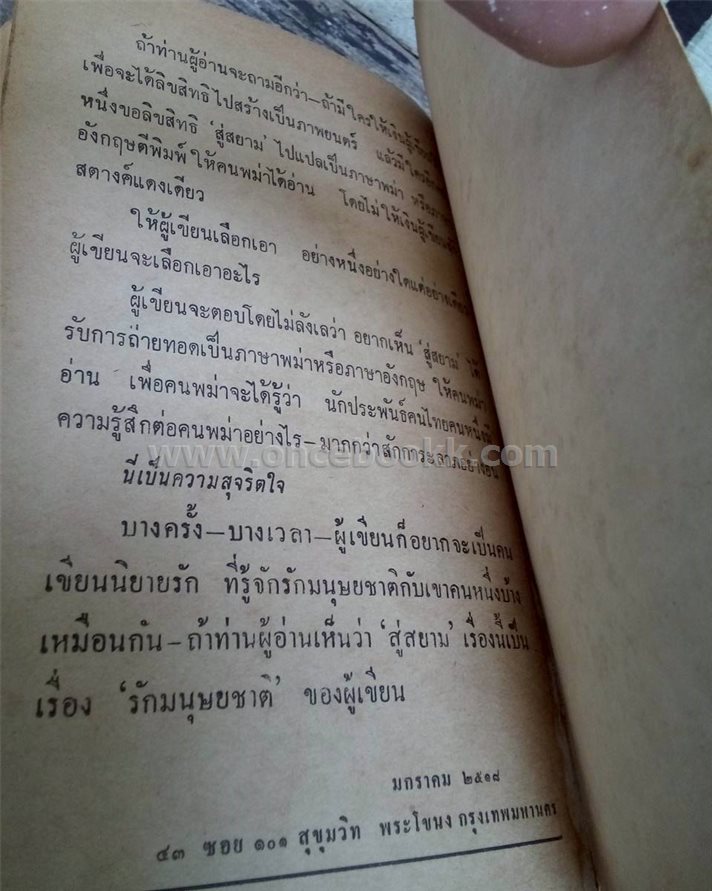 ถ้าท่านผู้อ่านจะถามอีกว่า—ถ้ามีใครให้เงินผู้เขียน
เพื่อจะได้ลิขสิทธิไปสร้างเป็นภาพยนตร์ แล้วมีใครอีก
หนึ่งขอลิขสิทธิ ‘สู่สยาม’ ไปแปลเป็นภาษาพม่า หรือภาษา
อังกฤษตีพิมพ์ ให้คนพม่าได้อ่าน โดยไม่ให้เงินผู้เขียน
สตางค์แดงเดียว
ให้ผู้เขียนเลือกเอา อย่างหนึ่งอย่างใดแต่อย่างเดียว
ผู้เขียนจะเลือกเอาอะไร
ผู้เขียนจะตอบโดยไม่ลังเลว่า อยากเห็น ‘สู่สยาม’ ได้
รับการถ่ายทอดเป็นภาษาพม่าหรือภาษาอังกฤษ ให้คนพม่า
อ่าน เพื่อคนพม่าจะได้รู้ว่า นักประพันธ์คนไทยคนหนึ่งมี
ความรู้สึกต่อคนพม่าอย่างไร—มากกว่าสักการะลาภะอย่างอื่น
www.oncebookk.com
นี่เป็นความสุจริตใจ
บางครั้ง—บางเวลา—ผู้เขียนก็อยากจะเป็นคน
เขียนนิยายรัก ที่รู้จักรักมนุษยชาติกับเขาคนหนึ่งบ้าง
เหมือนกัน—ถ้าท่านผู้อ่านเห็นว่า ‘สู่สยาม’ เรื่องนี้เป็น
เรื่อง ‘รักมนุษยชาติ’ ของผู้เขียน
มกราคม ๒๕๑๘
๔๓ ซอย ๑๐๑ สุขุมวิท พระโขนง กรุงเทพมหานคร